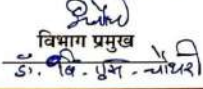 विभाग प्रमुख
डॉ. वि. एम. चौधरी